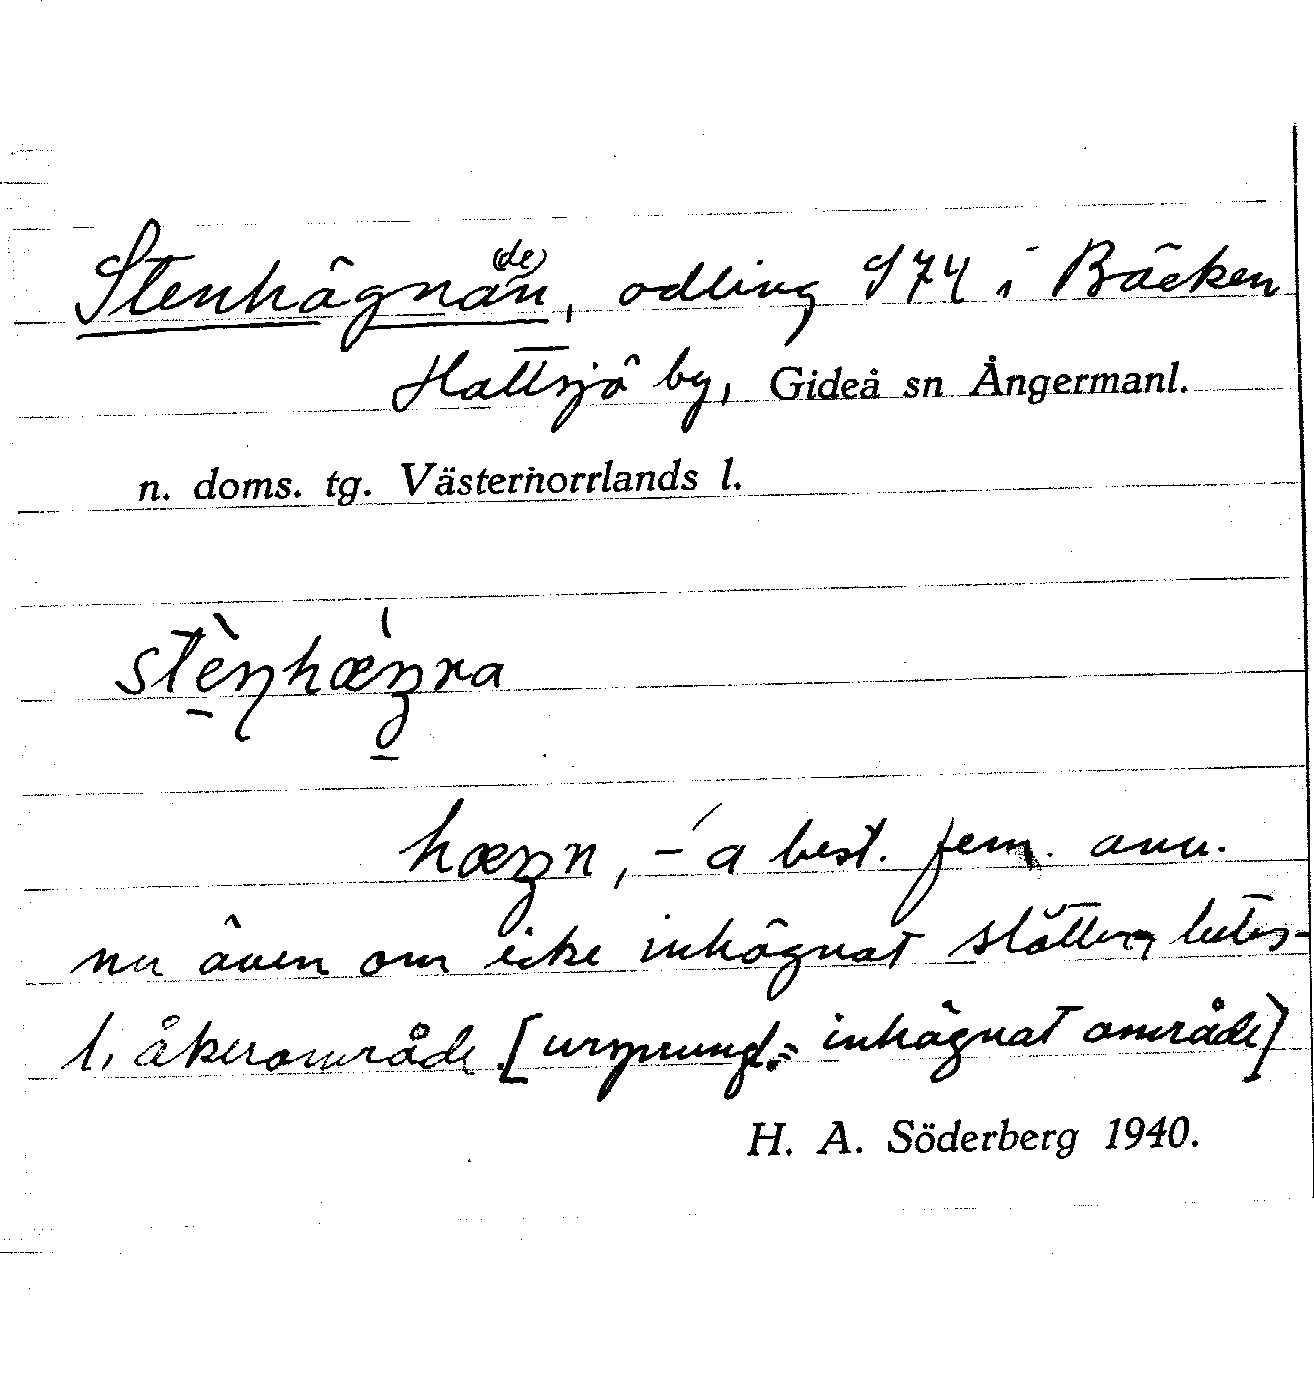 Stenhägnan(de), odling 974 i Bäcken
Hattsjö by, Gideå sn Ångermanl.
n. doms. tg. Västernorrlands l.
hægn, -´a best. fem. anv.
nu även om icke inhägnat slåtter, betes-
l. åkerområde [ursprungl. = inhägnat område]
H. A. Söderberg 1940.